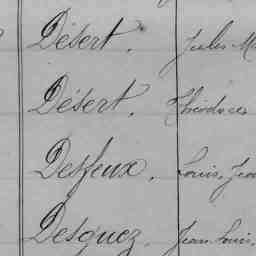 Désert. Jules M
Désert. Théodore
Desfeux. Louis, Jea
Desguez. Jean Louis,